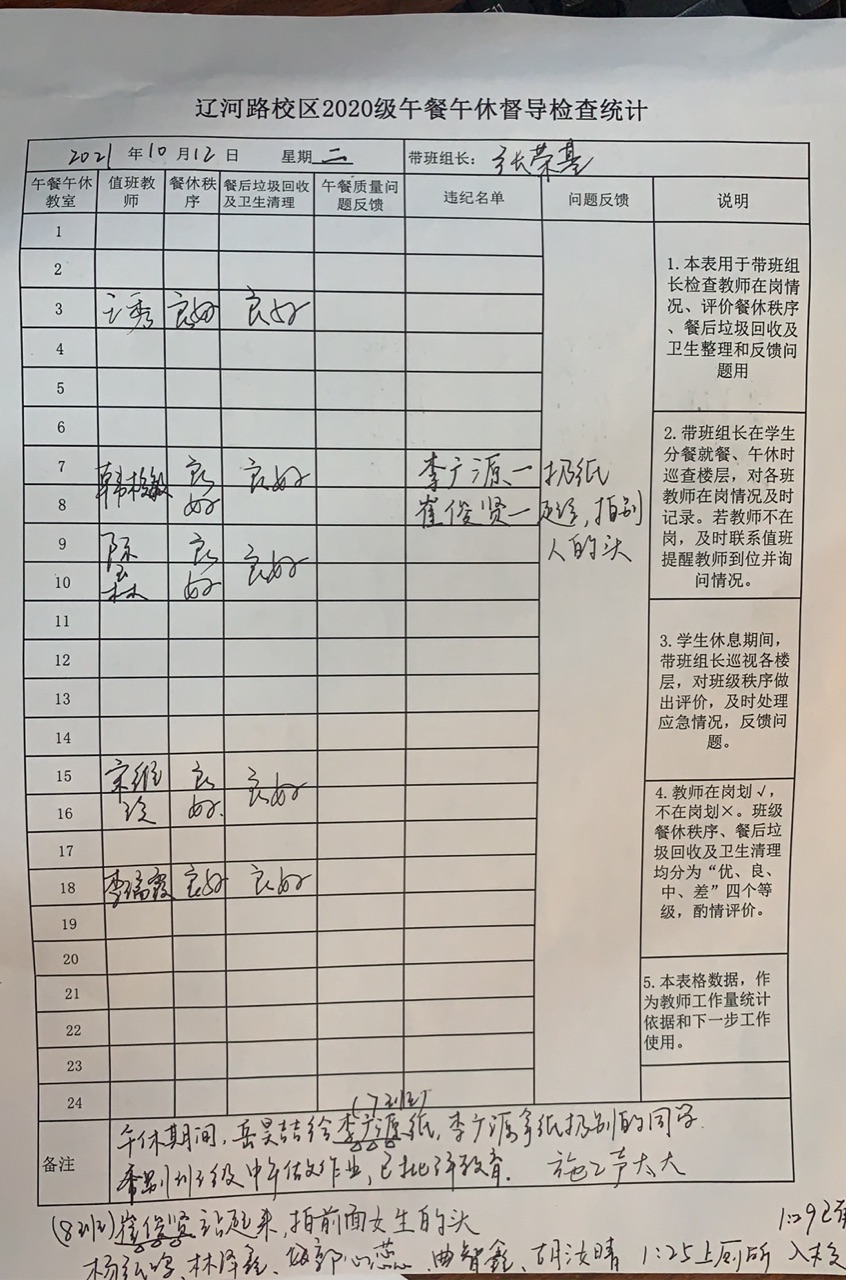 辽河路校区2020级午餐午休督导检查统计
2021 年 10 月 12 日 星期 二 带班组长: 张荣基
午餐午休教室 值班教师 餐休秩序 餐后垃圾回收及卫生清理 午餐质量问题反馈 违纪名单 问题反馈 说明
1
2
3 良好 良好
4
5
6
7 韩 良好 良好 李广源一扔纸
8 崔俊贤一 拍别
9 陈森 良好 良好 人的头
10
11
12
13
14
15 宋维玲 良好 良好
16
17
18 李瑞霞 良好 良好
19
20
21
22
23
24
1.本表用于带班组
长检查教师在岗情
况、评价餐休秩序
、餐后垃圾回收及
卫生整理和反馈问
题用
2.带班组长在学生
分餐就餐、午休时
巡查楼层,对各班
教师在岗情况及时
记录。若教师不在
岗,及时联系值班
提醒教师到位并询
问情况。
3.学生休息期间,
带班组长巡视各楼
层,对班级秩序做
出评价,及时处理
应急情况,反馈问
题。
4.教师在岗划√,
不在岗划×。班级
餐休秩序、餐后垃
圾回收及卫生清理
均分为“优、良、
中、差”四个等
级,酌情评价。
5.本表格数据,作
为教师工作量统计
依据和下一步工作
使用。
备注
(7班)
午休期间,岳昊喆给李广源纸,李广源拿纸扔别的同学.
个别班级中午做作业,已批评教育. 施工声太大
(8班)崔俊贤站起来,拍前面女生的头
杨弘鸣、林泽鑫、 郭心蕊、曲智鑫、胡汝晴 1:25上厕所
1:29已